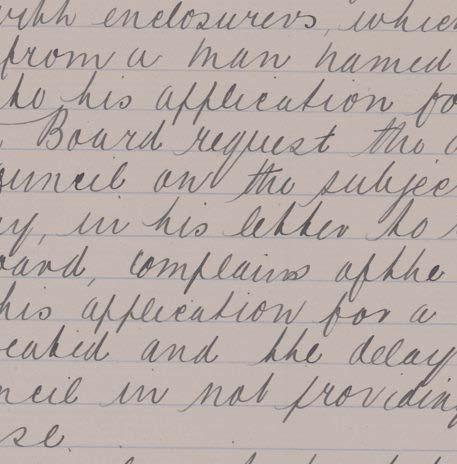 with enclosures, which
from a man named
to his application fo
Board request the
ouncil on the subjec
y, in his letter to
oard, complains of the
his application for a
reated and the delay
ncil in not providing
se.